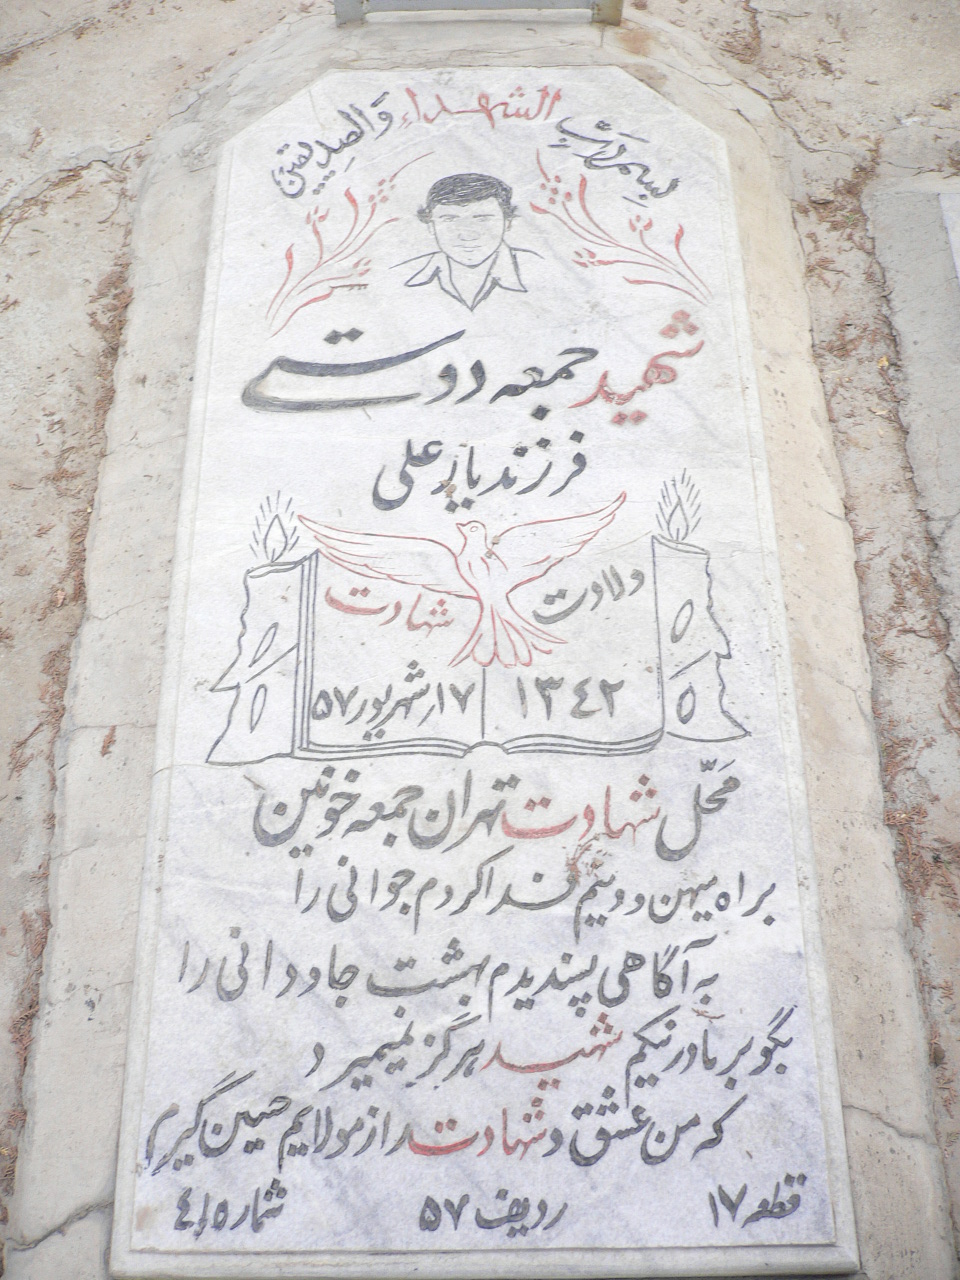 بسم رب الشهداء و الصدیقین
شهید جمعه دوستی
فرزند یارعلی
ولادت شهادت
۱۳٤۲ ۱۷ر شهریور ۵۷
مَحَلّ شهادت تهران جمعه خونین
براه میهن و دینم فدا کردم جوانی را
به آگاهی پسندیدم بهشت جاودانی را
بگو بر مادر نیکم شهید هرگز نمیمیرد
که من عشق و شهادت را از مولایم حسین گیرم
قطعه ۱۷ ردیف ۵۷ شماره ٤